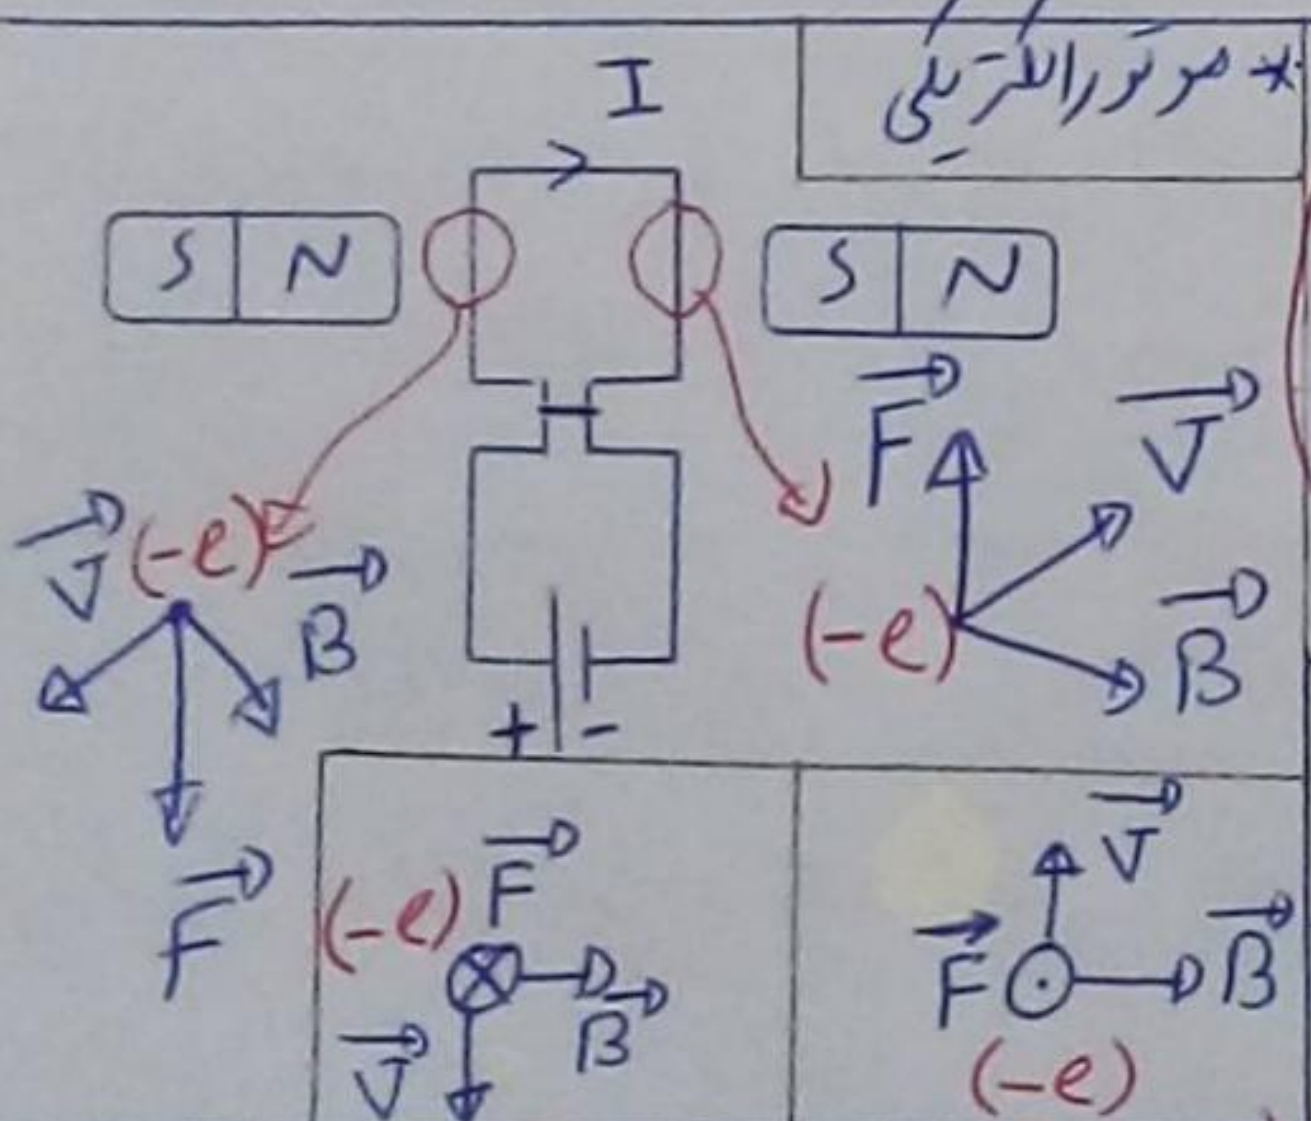 * موتور الکتریکی
I
S N
S N
F
V
(-e)
B
V
(-e)
B
F
+ -
(-e)
F
B
V
V
F
B
(-e)